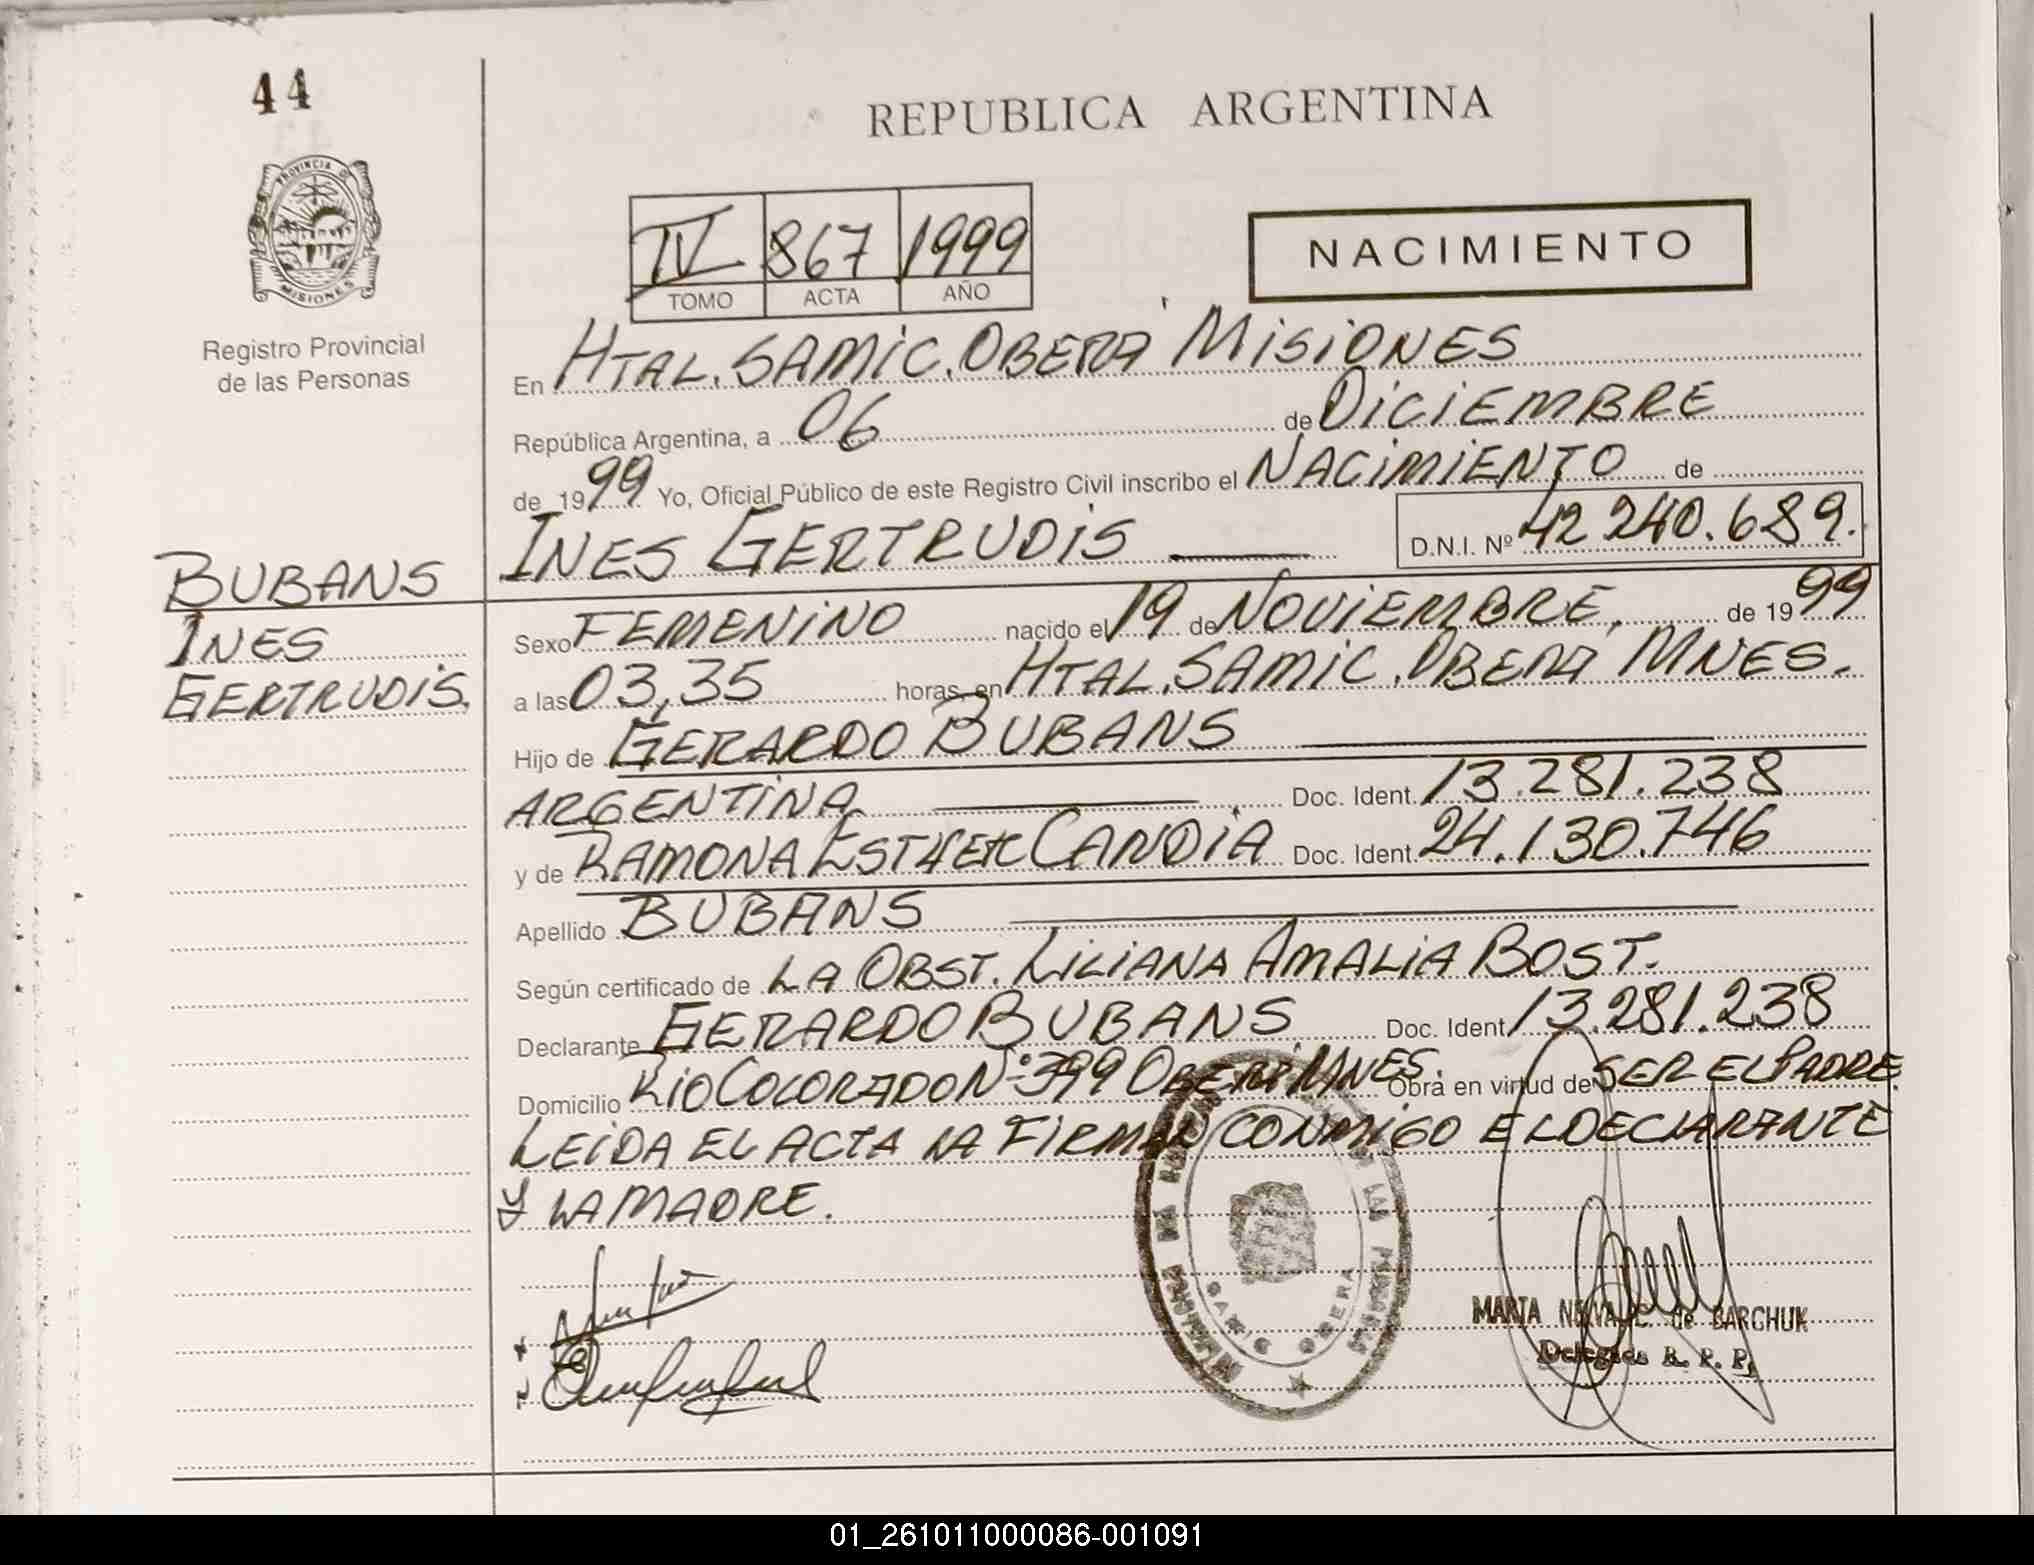 44
REPUBLICA ARGENTINA
PROVINCIA D
MISIONES
Registro Provincial
de las Personas
IV 867 1999
TOMO ACTA AÑO
NACIMIENTO
En HTAL. SAMIC. OBERÁ MISIONES
República Argentina, a 06 de DICIEMBRE
de 1999 Yo, Oficial Público de este Registro Civil inscribo el NACIMIENTO de
INES GERTRUDIS D.N.I. Nº 42 240.689.
BUBANS
INES
GERTRUDIS.
Sexo FEMENINO nacido el 19 de NOVIEMBRE, de 1999
a las 03,35 horas, en HTAL. SAMIC. OBERÁ MNES.
Hijo de GERARDO BUBANS
ARGENTINA Doc. Ident. 13.281.238
y de RAMONA ESTHER CANDIA Doc. Ident. 24.130.746
Apellido BUBANS
Según certificado de LA OBST. LILIANA AMALIA BOST.
Declarante GERARDO BUBANS Doc. Ident 13.281.238
Domicilio RIO COLORADO Nº 399 OBERÁ MNES. Obra en virtud de SER EL PADRE
LEIDA EL ACTA LA FIRMAN CONMIGO EL DECLARANTE
Y LA MADRE.
SAMIC OBERA
MARTA NELVA C. de BARCHUK
Delegada R. P. P.
01_261011000086-001091